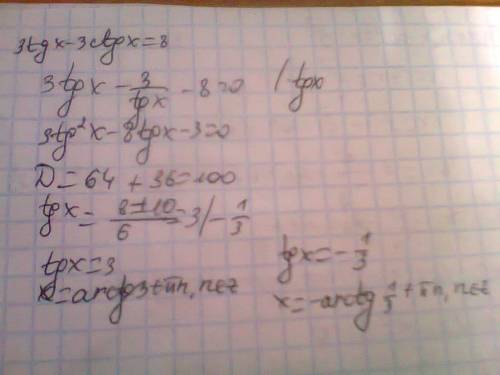 3tgx-3ctgx=8
3tgx - 3/tgx - 8=0 /tgx
3tg²x-8tgx-3=0
D=64+36=100
tgx= 8±10/6 =3/-1/3
tgx=3
tgx=-1/3
x=arctg3+πn, n∈z
x=-arctg 1/3+πn, n∈z